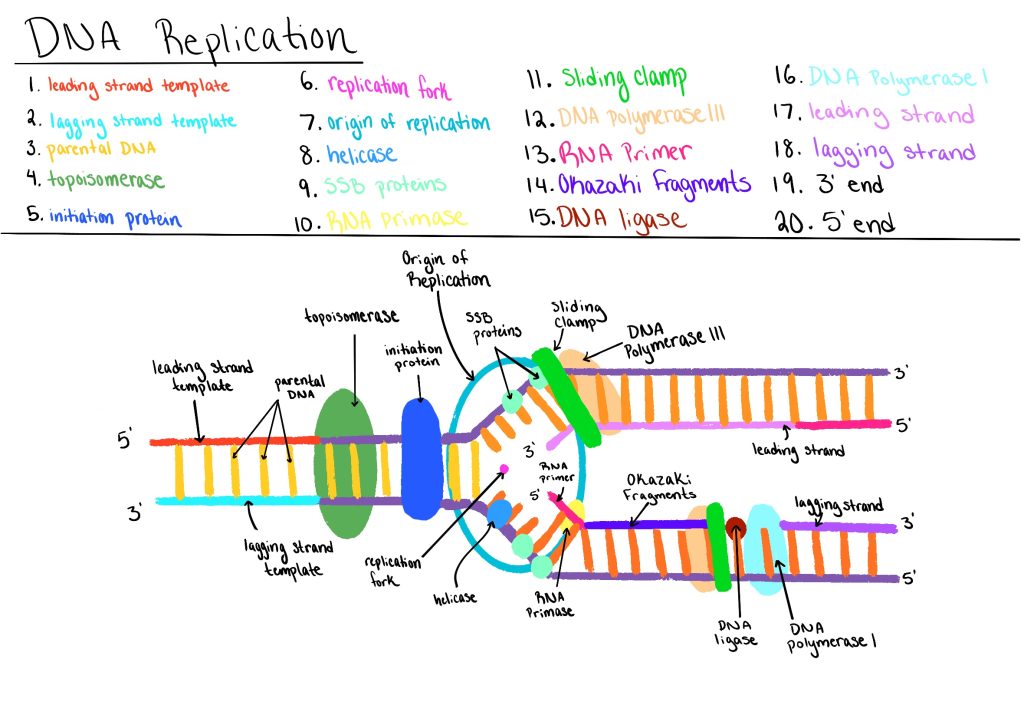 DNA Replication
1. leading strand template
2. lagging strand template
3. parental DNA
4. topoisomerase
5. initiation protein
6. replication fork
7. origin of replication
8. helicase
9. SSB proteins
10. RNA primase
11. Sliding clamp
12. DNA polymerase III
13. RNA Primer
14. Okazaki fragments
15. DNA ligase
16. DNA Polymerase I
17. leading strand
18. lagging strand
19. 3' end
20. 5' end
Origin of
Replication
topoisomerase
SSB
proteins
Sliding
Clamp
DNA
Polymerase III
initiation
protein
leading strand
template
parental
DNA
3'
5'
5'
leading strand
3'
RNA
primer
5'
Okazaki
Fragments
lagging strand
3'
3'
5'
lagging strand
template
replication
fork
helicase
RNA
Primase
DNA
ligase
DNA
polymerase I